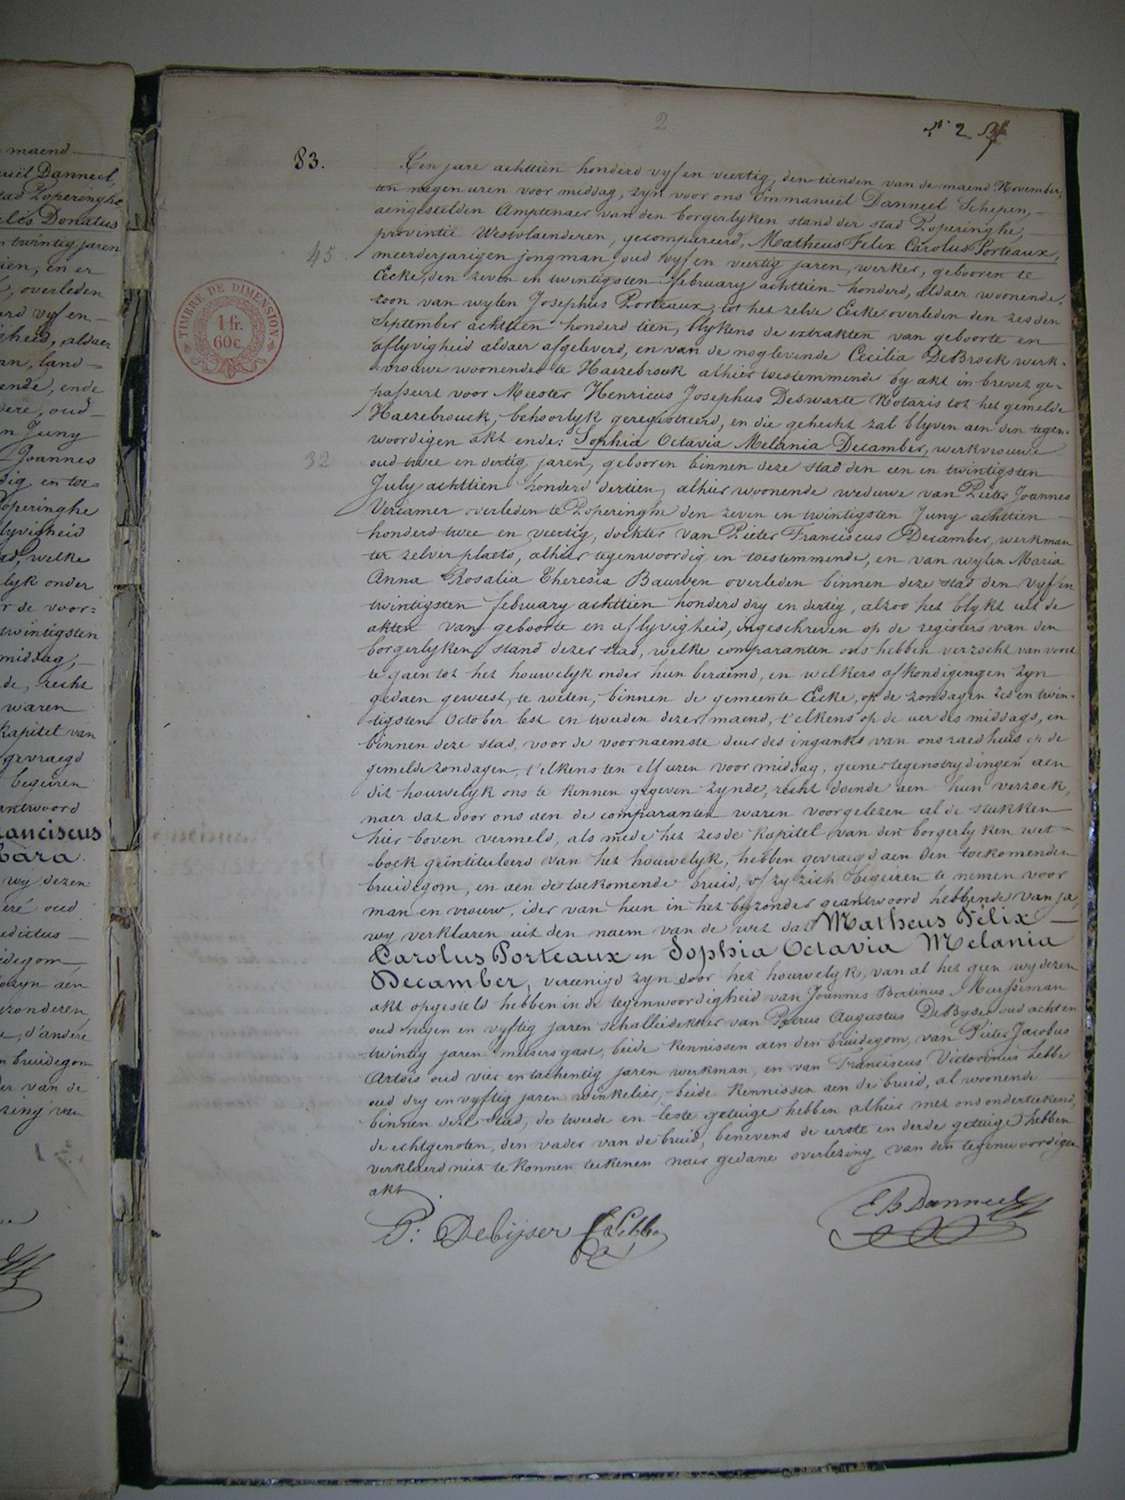 maend
uël Danneel,
tad Poperinghe
elés Donatus
n twintig jaren
ien, en er
, overleden
erd vyf en
gheid, aldaer
an, land-
ende, ende
dere, oud-
n Juny
Joannes
dig en toe
Poperinghe
lyvigheid
ad, welke
lyk onder
r de voor:
twintigsten
middag,
de, recht
waren
kapitel van
gevraegd
begeiren
antwoord
ranciscus
bara
wij dezen
oud
edictus
idegom
ozyn aen
zonderen
d'andere
n bruidegom
er van de
zing van
2
N° 2
83.
Ten jare achttien honderd vyf en veertig, den tienden van de maend November,
ten negen uren voor middag, zyn voor ons Emmanuël Danneel Schepen,
aengestelden Amptenaer van den borgerlyken stand der stad Poperinghe,
provintie Westvlaenderen, gecompareerd, Matheus Felix Carolus Porteaux,
45
meerderjarigen jongman oud vyf en veertig jaren, werker, gebooren te
Eecke, den zeven en twintigsten february achttien honderd, aldaer woonende,
zoon van wylen Josephus Porteaux, tot het zelve Eecke overleden den zesden
TIMBRE DE DIMENSION
1 fr.
60 c.
September achttien honderd tien, blykens de extrakten van geboorte en
aflyvigheid aldaer afgeleverd, en van de noglevende Cecilia DeBrock werk-
vrouwe woonende te Haezebrouk alhier toestemmende by akt in brevet ge-
passeert voor Meester Henricus Josephus Deswarte Notaris tot het gemelde
Haezebrouck, behoorlyk geregistreerd, en die gehecht zal blyven aen den tegen-
woordigen akt ende: Sophia Octavia Melania Decamber, werkvrouwe
32
oud twee en dertig jaren, gebooren binnen deze stad den een en twintigsten
July achttien honderd dertien, alhier woonende weduwe van Pieter Joannes
Vercamer overleden te Poperinghe den zeven en twintigsten Juny achttien
honderd twee en veertig, dochter van Pieter Franciscus Decamber, werkman
ter zelver plaets, alhier tegenwoordig en toestemmende, en van wylen Maria
Anna Rosalia Theresia Baurven overleden binnen deze stad den vyf en
twintigsten february achttien honderd dry en dertig, alzoo het blykt uit de
akten van geboorte en aflyvigheid, ingeschreven op de registers van den
borgerlyken stand dezer stad, welke comparanten ons hebben verzocht van voort
te gaen tot het houwelyk onder hun beraemd, en welkers afkondigingen zyn
gedaen geweest, te weten, binnen de gemeente Eecke, op de zondagen zes en twin-
tigsten October lest en tweeden dezer maend, t'elkens op de uer des middags, en
binnen deze stad, voor de voornaemste deur des inganks van ons raedhuis op de
gemelde zondagen, t'elkens ten elf uren voor middag, geene tegenstrydingen aen
dit houwelyk ons te kennen gegeven zynde, recht doende aen hun verzoek,
naer dat door ons aen de comparanten waren voorgelezen al de stukken
hier boven vermeld, als mede het zesde kapitel van den borgerlyken wet-
boek geïntituleerd van het houwelyk, hebben gevraegd aen den toekomenden
bruidegom, en aen de toekomende bruid, of zy zich begeiren te nemen voor
man en vrouw, ider van hun in het byzonder geantwoord hebbende van ja,
wy verklaren uit den naem van de wet dat Matheus Félix
Carolus Porteaux en Sophia Octavia Melania
Decamber, vereenigd zyn door het houwelyk, van al het geen wy dezen
akt opgesteld hebben in de tegenwoordigheid van Joannes Bertinus Mursiman
oud negen en vyftig jaren schalliedekker van Petrus Augustus DeByser oud acht en
twintig jaren meisersgast, beide kennissen aen den bruidegom, van Pieter Jacobus
Artois oud vier en tachentig jaren werkman, en van Franciscus Victorinus Lebbe
oud dry en vyftig jaren winkelier, beide kennissen aen de bruid, al woonende
binnen deze stad, de tweede en leste getuige hebben alhier met ons onderteekend,
de echtgenoten, den vader van de bruid, benevens de eerste en derde getuige hebben
verklaerd niet te konnen teekenen naer gedane overlezing van den tegenwoordigen
akt
P: Debijser F Lebbe
E B Danneel